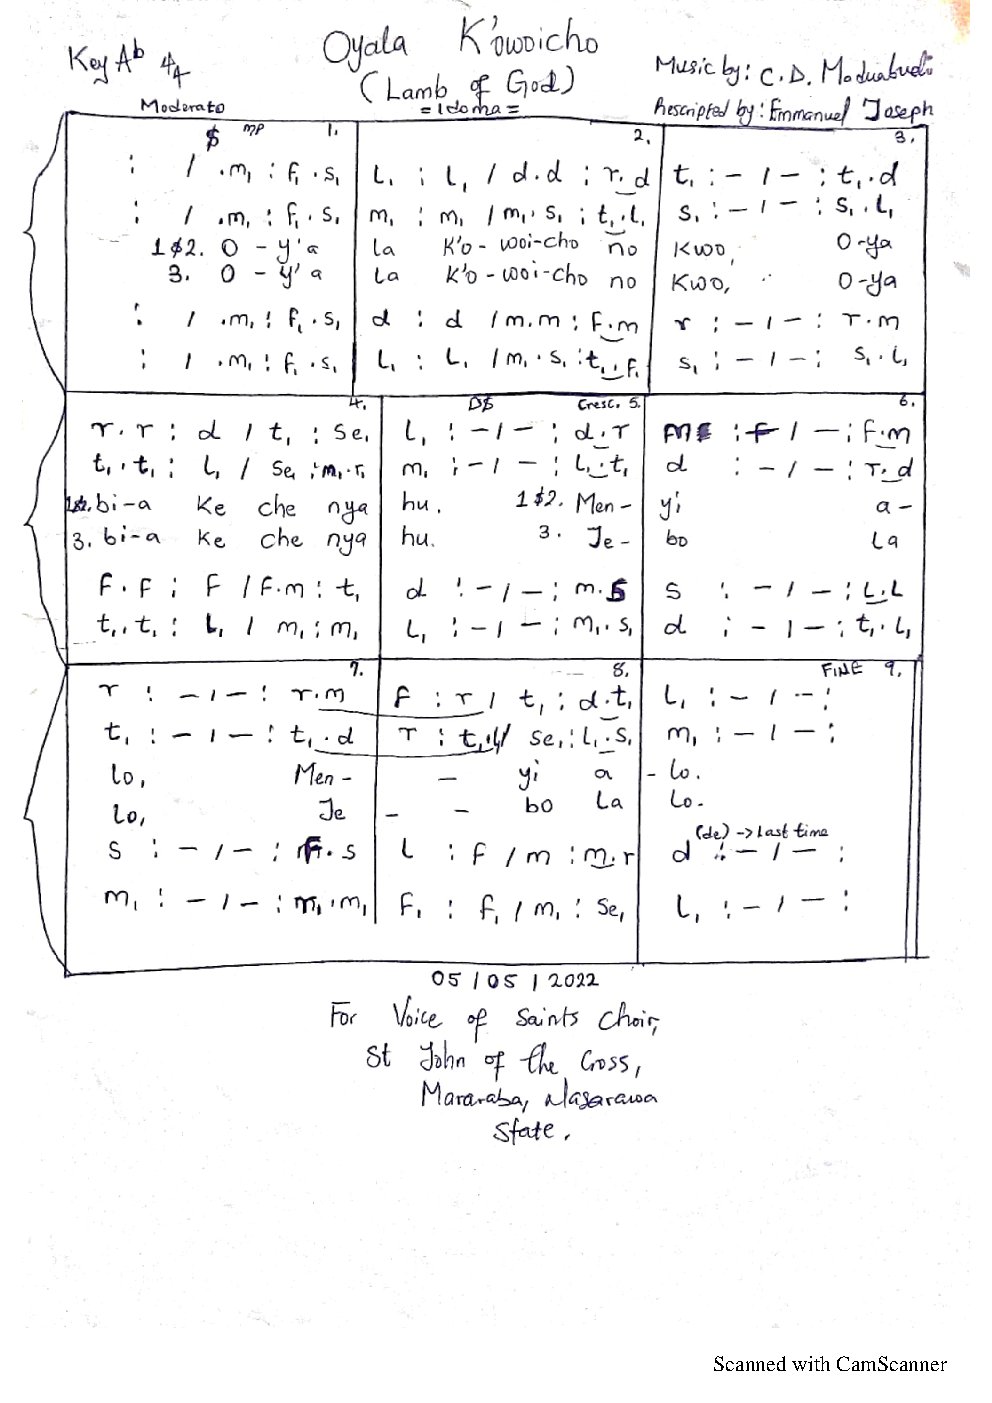 Oyala K'owoicho
Key Ab 4/4
(Lamb of God)
Music by: C.D.
Moderato
=Idoma=
Rescripted by: Emmanuel Joseph
$ mp 1. 2. 3.
: / .m, : f, . s, L, : L, / d.d : r.d t, : - / - : t, . d
: / .m, : f, . s, m, : m, / m, . s, : t, . L, s, : - / - : s, . L,
1$2. O - y'a la K'o - woi-cho no Kwo, O-ya
3. O - y'a la K'o - woi-cho no Kwo, O-ya
: / .m, : f, . s, d : d / m.m : f.m r : - / - : r.m
: / .m, : f, . s, L, : L, / m, . s, : t, . f, s, : - / - : s, . L,
4. D$ Cresc. 5. 6.
r.r : d / t, : se, L, : - / - : d.r : / - : f.m
t, . t, : L, / se, : m, . r, m, : - / - : L, . t, d : - / - : r.d
1$2. bi-a ke che nya hu. 1$2. Men- yi a-
3. bi-a ke che nya hu. 3. Je- bo La
f.f : f / f.m : t, d : - / - : m.s s : - / - : L.L
t, . t, : L, / m, : m, L, : - / - : m, . s, d : - / - : t, . L,
7. 8. FINE 9.
r : - / - : r.m f : r / t, : d.t, L, : - / - :
t, : - / - : t, . d r : t, . L, / se, : L, . s, m, : - / - :
lo, Men- - yi a - lo.
lo, Je - - bo La Lo.
(de) -> Last time
s : - / - : f.s L : f / m : m.r d : - / - :
m, : - / - : m, . m, f, : f, / m, : se, L, : - / - :
05/05/2022
For Voice of Saints Choir,
St John of the Cross,
Mararaba, Nasarawa
State.
Scanned with CamScanner